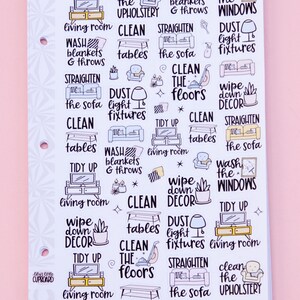 living room
the
UPHOLSTERY
blankets
& throws
the
WINDOWS
WASH
blankets
& throws
CLEAN
the
tables
STRAIGHTEN
the sofa
DUST
light
fixtures
STRAIGHTEN
the sofa
DUST
light
fixtures
CLEAN
the
FLOORS
wipe
down
DECOR
CLEAN
the
tables
WASH
blankets
& throws
TIDY UP
the
living room
STRAIGHTEN
the sofa
TIDY UP
the
living room
wipe
down
DECOR
CLEAN
the
tables
wash
the
WINDOWS
wipe
down
DECOR
CLEAN
the
FLOORS
DUST
light
fixtures
TIDY UP
the
living room
TIDY UP
the
living room
STRAIGHTEN
the sofa
clean
the
UPHOLSTERY
CUPBOARD